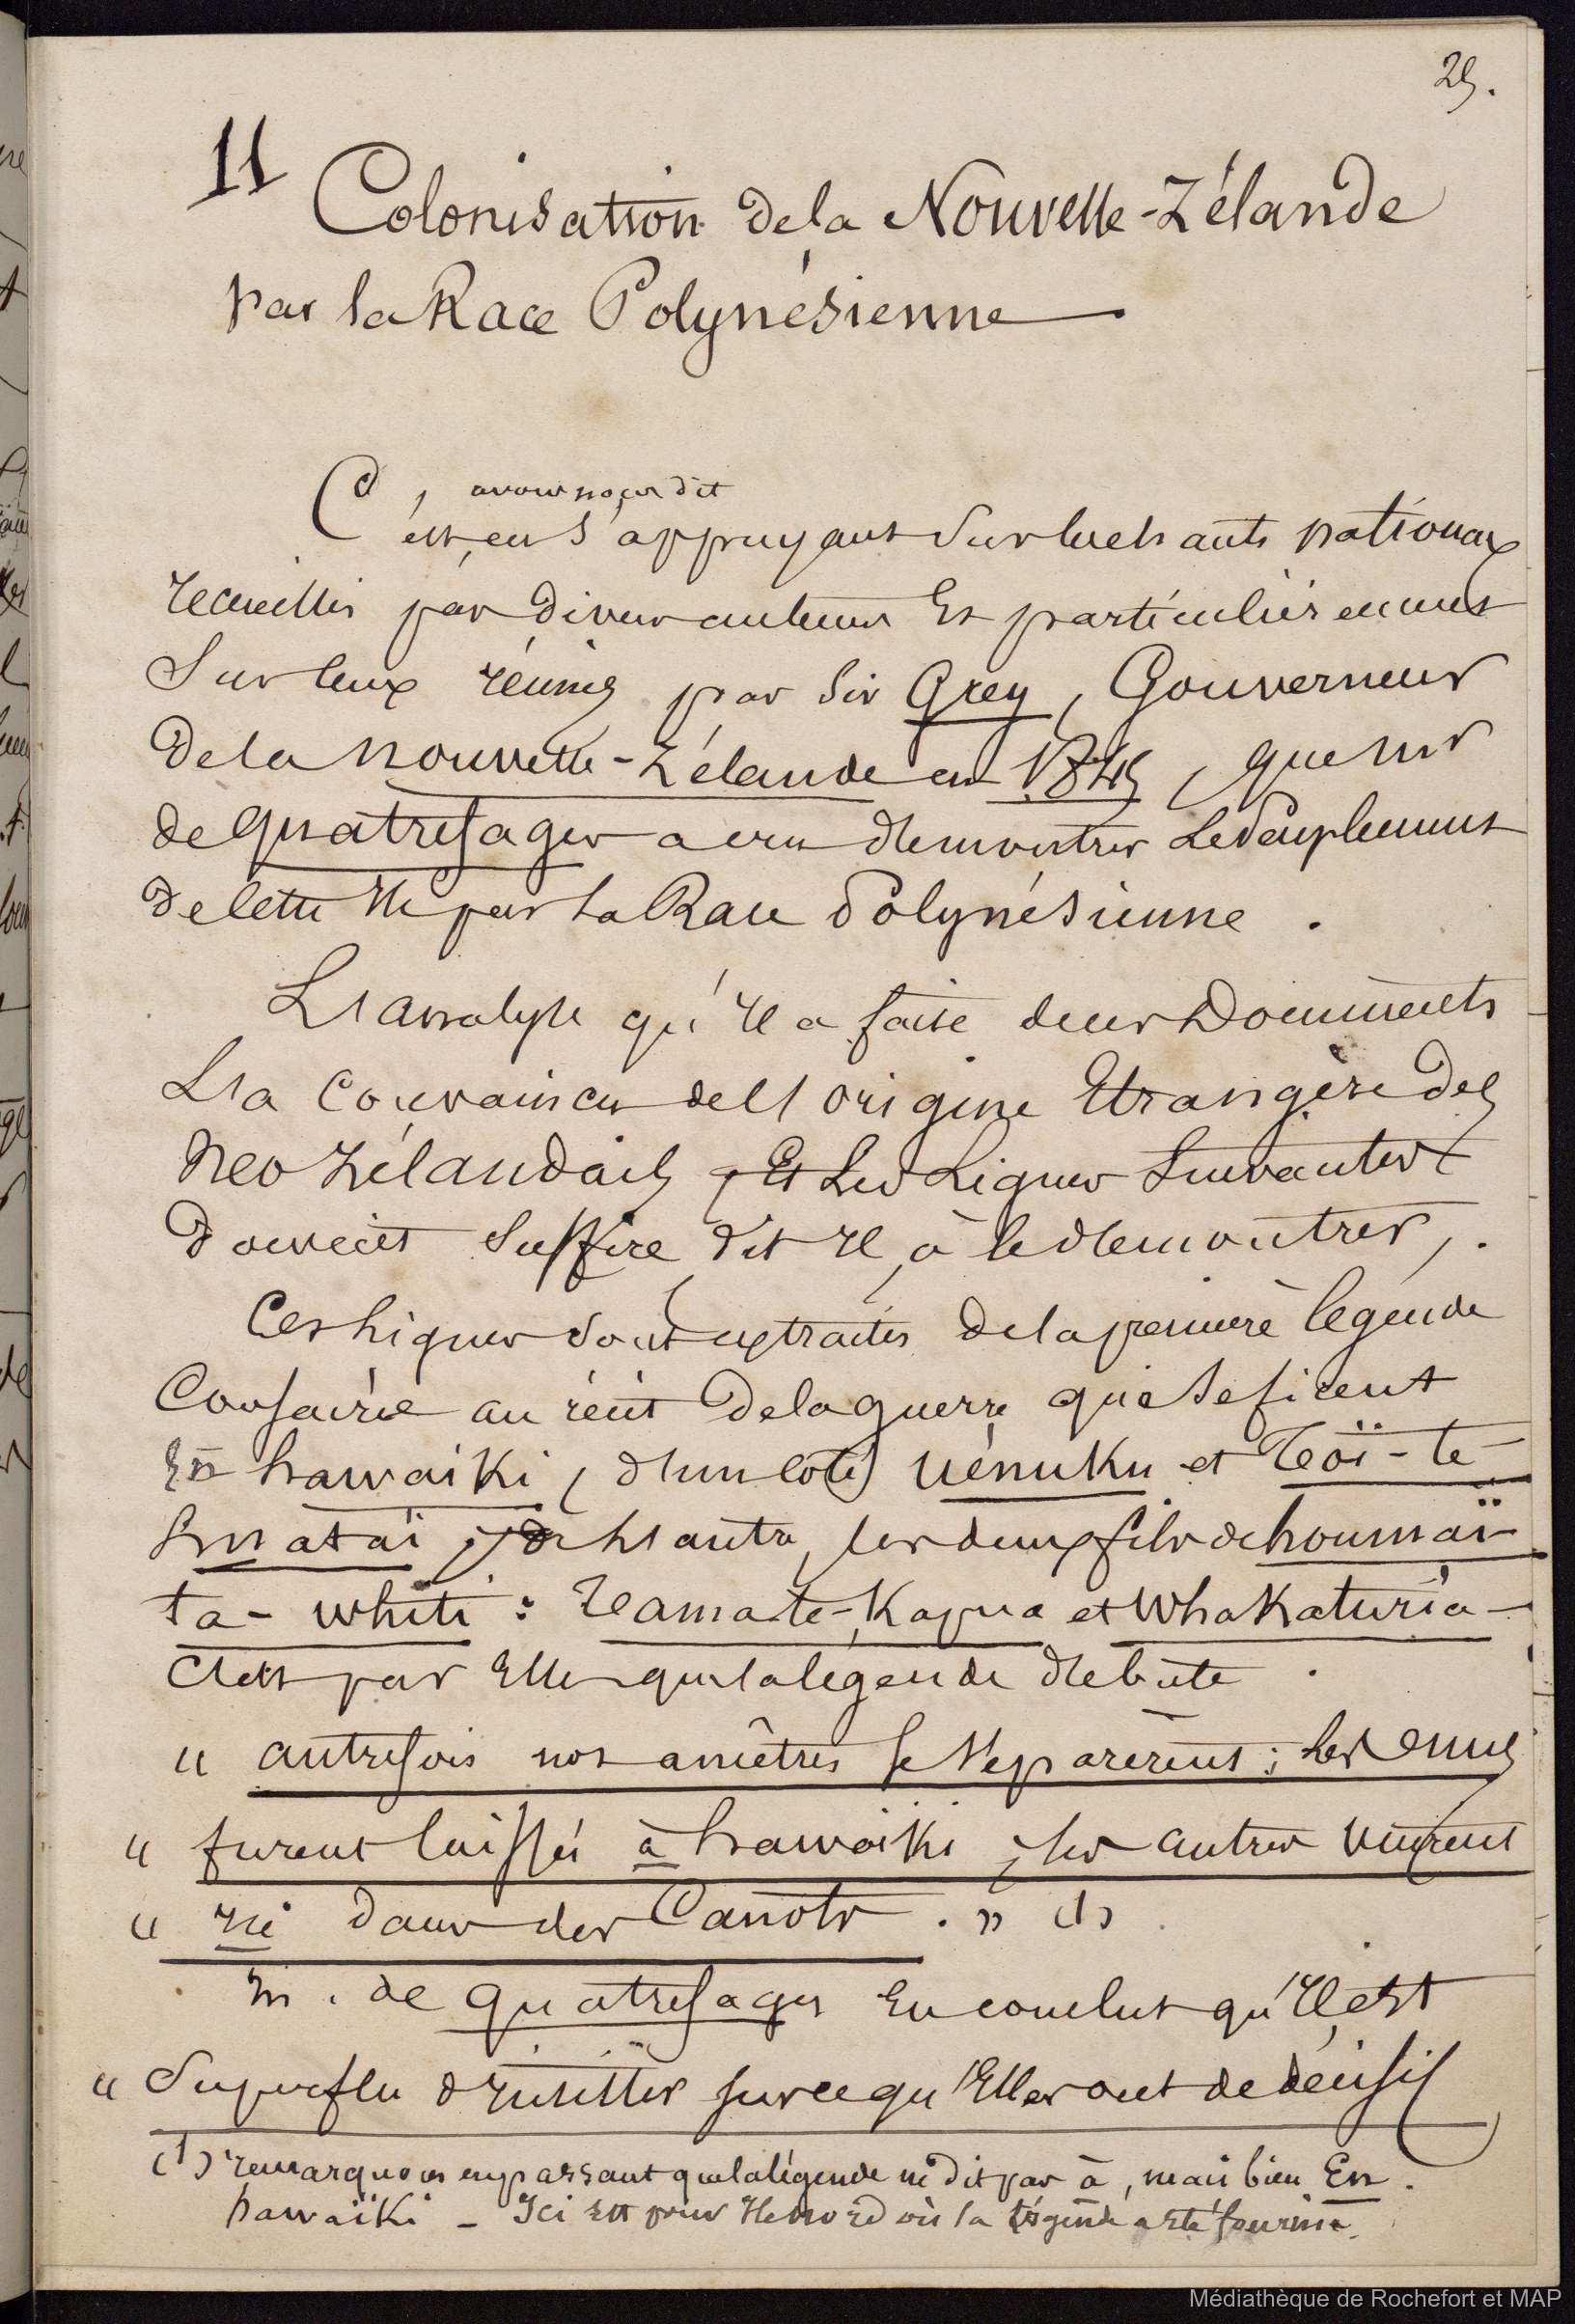 25.
11
Colonisation de la Nouvelle-Zélande
par la Race Polynésienne
avons nous dit
C'est, en s'appuyant sur les chants nationaux
recueillis par divers auteurs et particulièrement
sur ceux réunis par Sir Grey, Gouverneur
de la Nouvelle-Zélande en 1845, que Mr
de Quatrefages a cru démontrer le peuplement
de cette île par la Race Polynésienne.
L'analyse qu'il a faite de ces Documents
l'a convaincu de l'origine Etrangère des
Néo Zélandais, Et les Lignes Suivantes
doivent suffire, dit il, à le démontrer.
Ces lignes sont extraites de la première légende
Consacrée au récit de la guerre que se firent
En hawaiki, d'un côté, Uénuku et Toï-te-
hnataï; de l'autre, les deux fils de houmaï-
ta-whiti : Tamate-Kapua et Whakaturia-
C'est par Elle que la légende débute.
" autrefois nos ancêtres se séparèrent ; les uns
" furent laissés à hawaïki ; les autres vinrent
" ici dans des Canots. " (1)
M. de Quatrefages en conclut qu'il est
" Superflu d'insister sur ce qu'Elles ont de décisif
(1) remarquons en passant que la légende ne dit pas à, mais bien En
hawaïki - Ici est pour l'île nord où la légende a été fournie.
Médiathèque de Rochefort et MAP